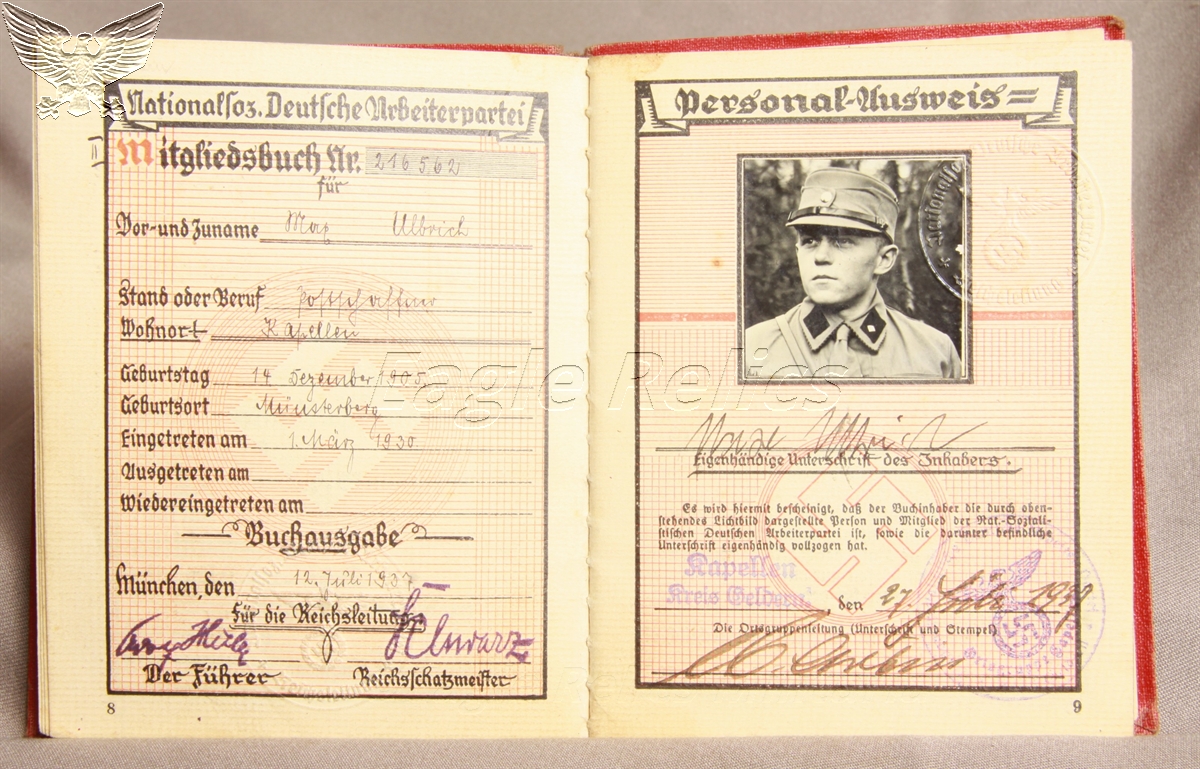 Nationalsoz. Deutsche Arbeiterpartei
Mitgliedsbuch Nr. 216562
für
Vor- und Zuname Max Ulbrich
Stand oder Beruf Postschaffner
Wohnort Kapellen
Geburtstag 14. Dezember 1905
Geburtsort Münsterberg
Eingetreten am 1. März 1930
Ausgetreten am
Wiedereingetreten am
Buchausgabe
München, den 12. Juli 1937
für die Reichsleitung
Schwarz
Der Führer Reichsschatzmeister
8
Personal-Ausweis
Eigenhändige Unterschrift des Inhabers.
Es wird hiermit bescheinigt, daß der Buchinhaber die durch oben-
stehendes Lichtbild dargestellte Person und Mitglied der Nat.-Soziali-
stischen Deutschen Arbeiterpartei ist, sowie die darunter befindliche
Unterschrift eigenhändig vollzogen hat.
Kapellen
Kreis Geldern, den 27.
Die Ortsgruppenleitung (Unterschrift und Stempel)
9
Eagle Relics